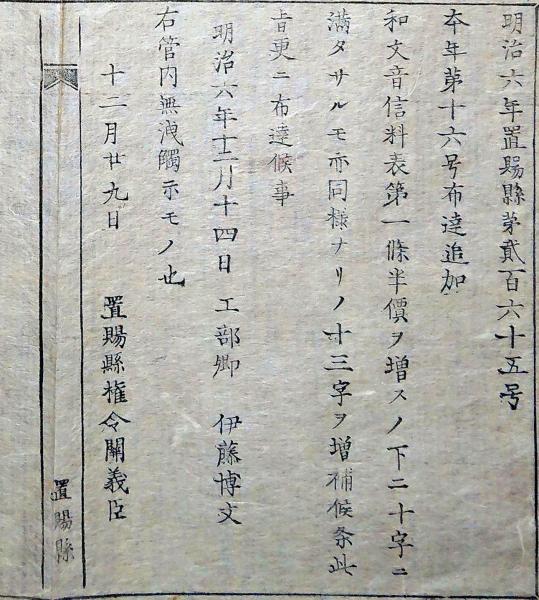 明治六年置賜縣第貳百六十五号
本年第十六号布達追加
和文音信料表第一條半價ヲ増スノ下ニ十字ニ
満タサルモ亦同様ナリノ十三字ヲ増補候条此
旨更ニ布達候事
明治六年十二月十四日 工部卿 伊藤博文
右管内無洩觸示モノ也
十二月廿九日 置賜縣権令關義臣
置賜縣